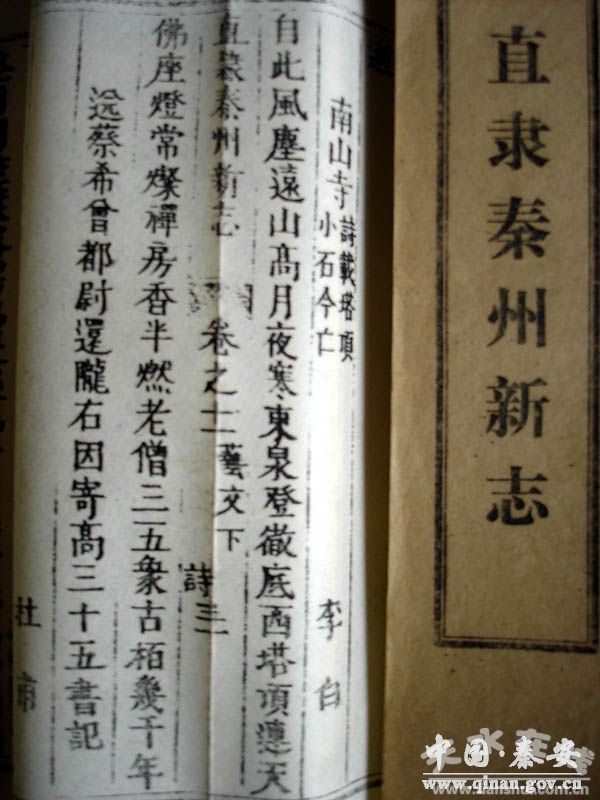 直隶秦州新志
南山寺 詩載塔頂小石今亡 李白
自此風塵遠山高月夜寒東泉登徹底西塔頂連天
直隸秦州新志 卷之十二 藝文下 詩三
佛座燈常燦禪房香半燃老僧三五衆古栢幾千年
送蔡希曾都尉還隴右因寄高三十五書記 杜甫
中国·秦安
www.qinan.gov.cn